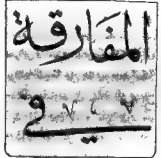 المفارقة
في